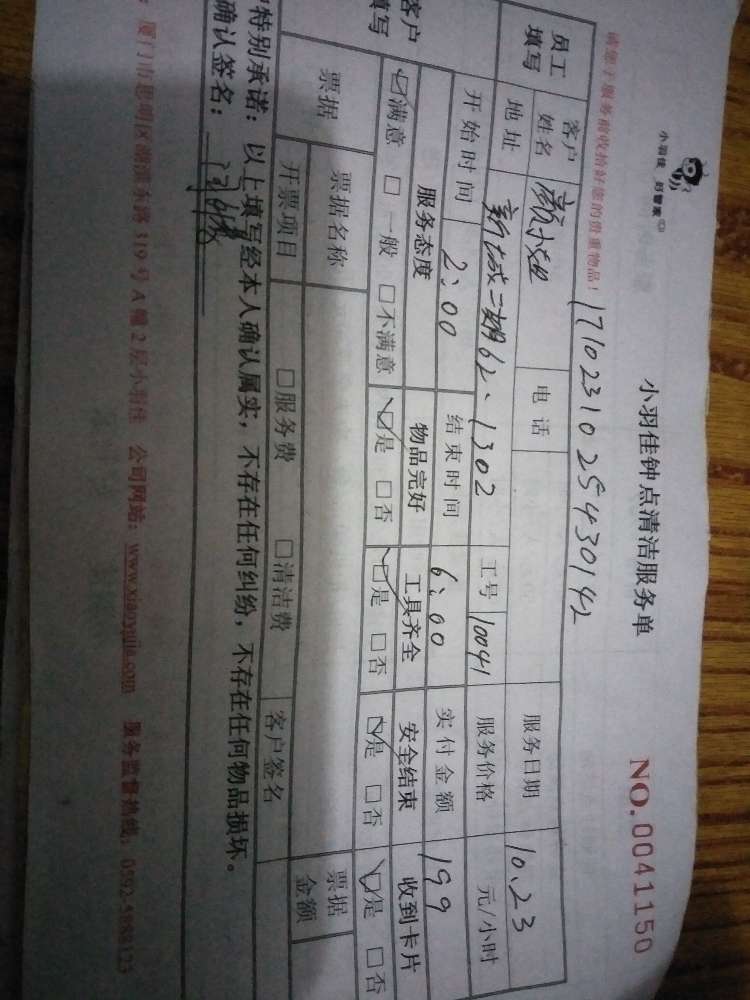 小羽佳 好管家
小羽佳钟点清洁服务单
NO.0041150
请您于服务前收拾好您的贵重物品！
1710231025430142
员工填写
客户姓名 颜小姐 电话 服务日期 10.23
地址 新城二期62、1302 工号 10041 服务价格 元/小时
开始时间 2:00 结束时间 6:00 实付金额 199
客户填写
服务态度 物品完好 工具齐全 安全结束 收到卡片
☑满意 □一般 □不满意 ☑是 □否 ☑是 □否 ☑是 □否 ☑是 □否
票据 票据名称 票据金额
开票项目 □服务费 □清洁费 客户签名
特别承诺：以上填写经本人确认属实，不存在任何纠纷，不存在任何物品损坏。
确认签名：
厦门市思明区湖滨东路319号A幢2层小羽佳 公司网站：www.xiaoyujia.com 服务监督热线：0592-5988123